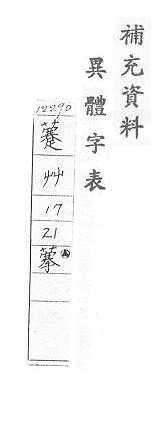 補充資料
異體字表
12290
艸
17
21